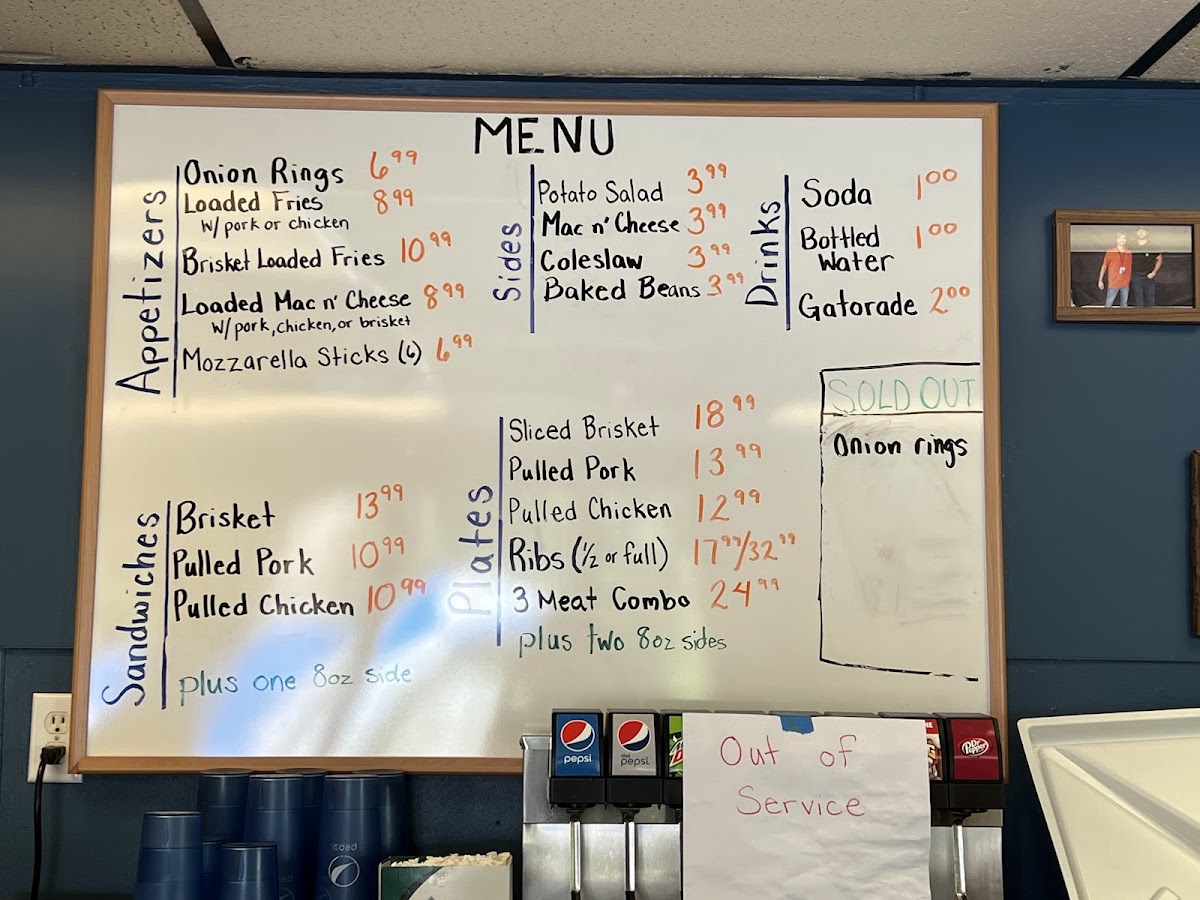 MENU
Appetizers
Onion Rings 6.99
Loaded Fries 8.99
w/ pork or chicken
Brisket Loaded Fries 10.99
Loaded Mac n' Cheese 8.99
w/ pork, chicken, or brisket
Mozzarella Sticks (6) 6.99
Sides
Potato Salad 3.99
Mac n' Cheese 3.99
Coleslaw 3.99
Baked Beans 3.99
Drinks
Soda 1.00
Bottled Water 1.00
Gatorade 2.00
SOLD OUT
Onion rings
Sandwiches
Brisket 13.99
Pulled Pork 10.99
Pulled Chicken 10.99
plus one 8oz side
Plates
Sliced Brisket 18.99
Pulled Pork 13.99
Pulled Chicken 12.99
Ribs (1/2 or full) 17.99/32.99
3 Meat Combo 24.99
plus two 8oz sides
pepsi
pepsi
Dr Pepper
Out of
Service